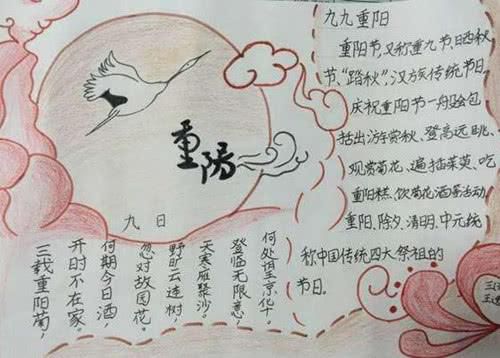 重陽
九日
三载重阳菊，
开时不在家。
何期今日酒，
忽对故园花。
野旷云连树，
天寒雁聚沙。
登临无限意，
何处望京华。
九九重阳
重阳节，又称重九节、晒秋
节、“踏秋”，汉族传统节日。
庆祝重阳节一般会包
括出游赏秋、登高远眺、
观赏菊花、遍插茱萸、吃
重阳糕、饮菊花酒等活动。
重阳、除夕、清明、中元统
称中国传统四大祭祖的
节日。